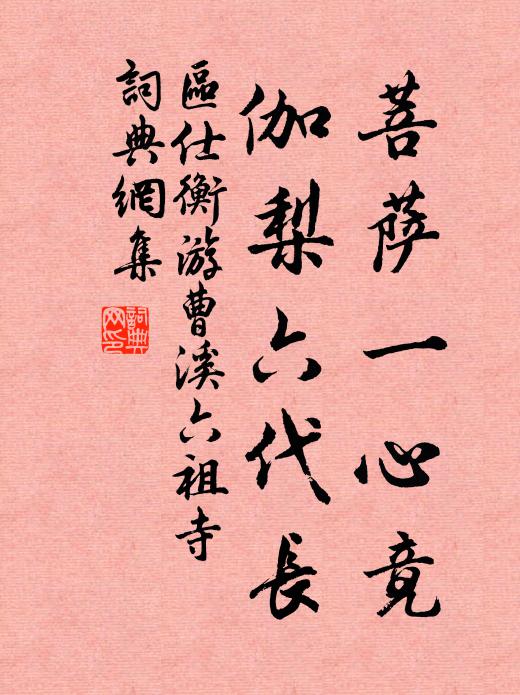 菩薩一心竟
伽梨六代長
區仕衡游曹溪六祖寺
詞典網集
詞典網印